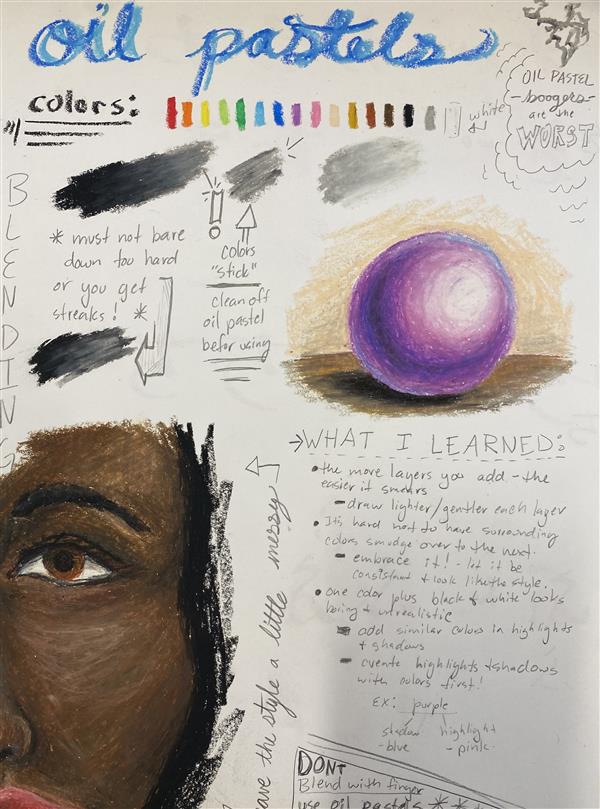 oil pastels
OIL PASTEL
boogers
are the
WORST
colors:
white
BLENDING
* must not bare
down too hard
or you get
streaks! *
!
colors
"stick"
clean off
oil pastel
befor using
→WHAT I LEARNED:
• the more layers you add - the
easier it smears
- draw lighter/gentler each layer
• It's hard not to have surrounding
colors smudge over to the next.
- embrace it! - let it be
consistant & look like the style.
• one color plus black & white looks
boring & unrealistic
- add similar colors in highlights
& shadows
- create highlights & shadows
with colors first!
EX: purple
shadow highlight
-blue -pink
ave the style a little messy
DONT
Blend with finger
use oil pastels * *